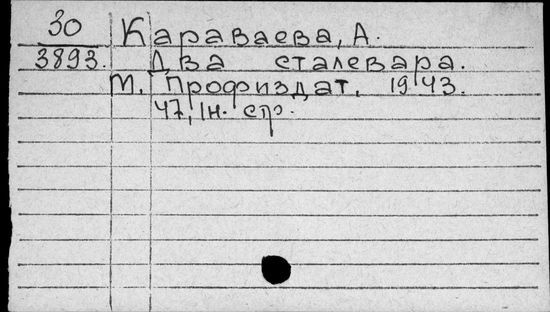 30 Караваева, А.
3893. Два сталевара.
М. Профиздат, 1943.
47, 1н. стр.